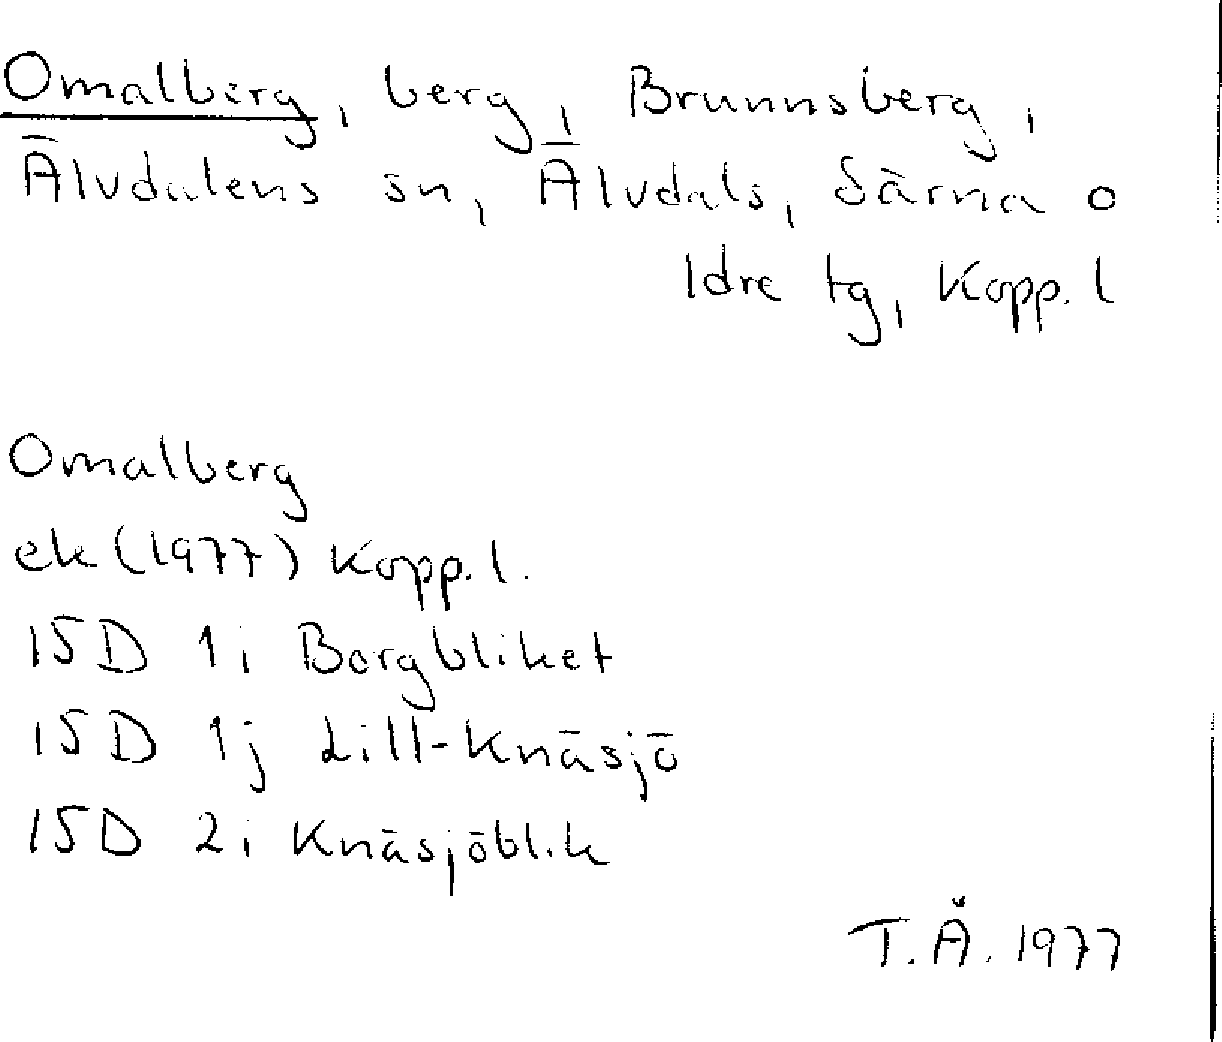 Omalberg, berg, Brunnsberg,
Älvdalens sn, Älvdals, Särna o
Idre tg, Kopp. l
Omalberg
ek (1977) Kopp. l.
15D 1i Borgbliket
15D 1j Lill-Knäsjö
15D 2i Knäsjöblik
T.Å. 1977